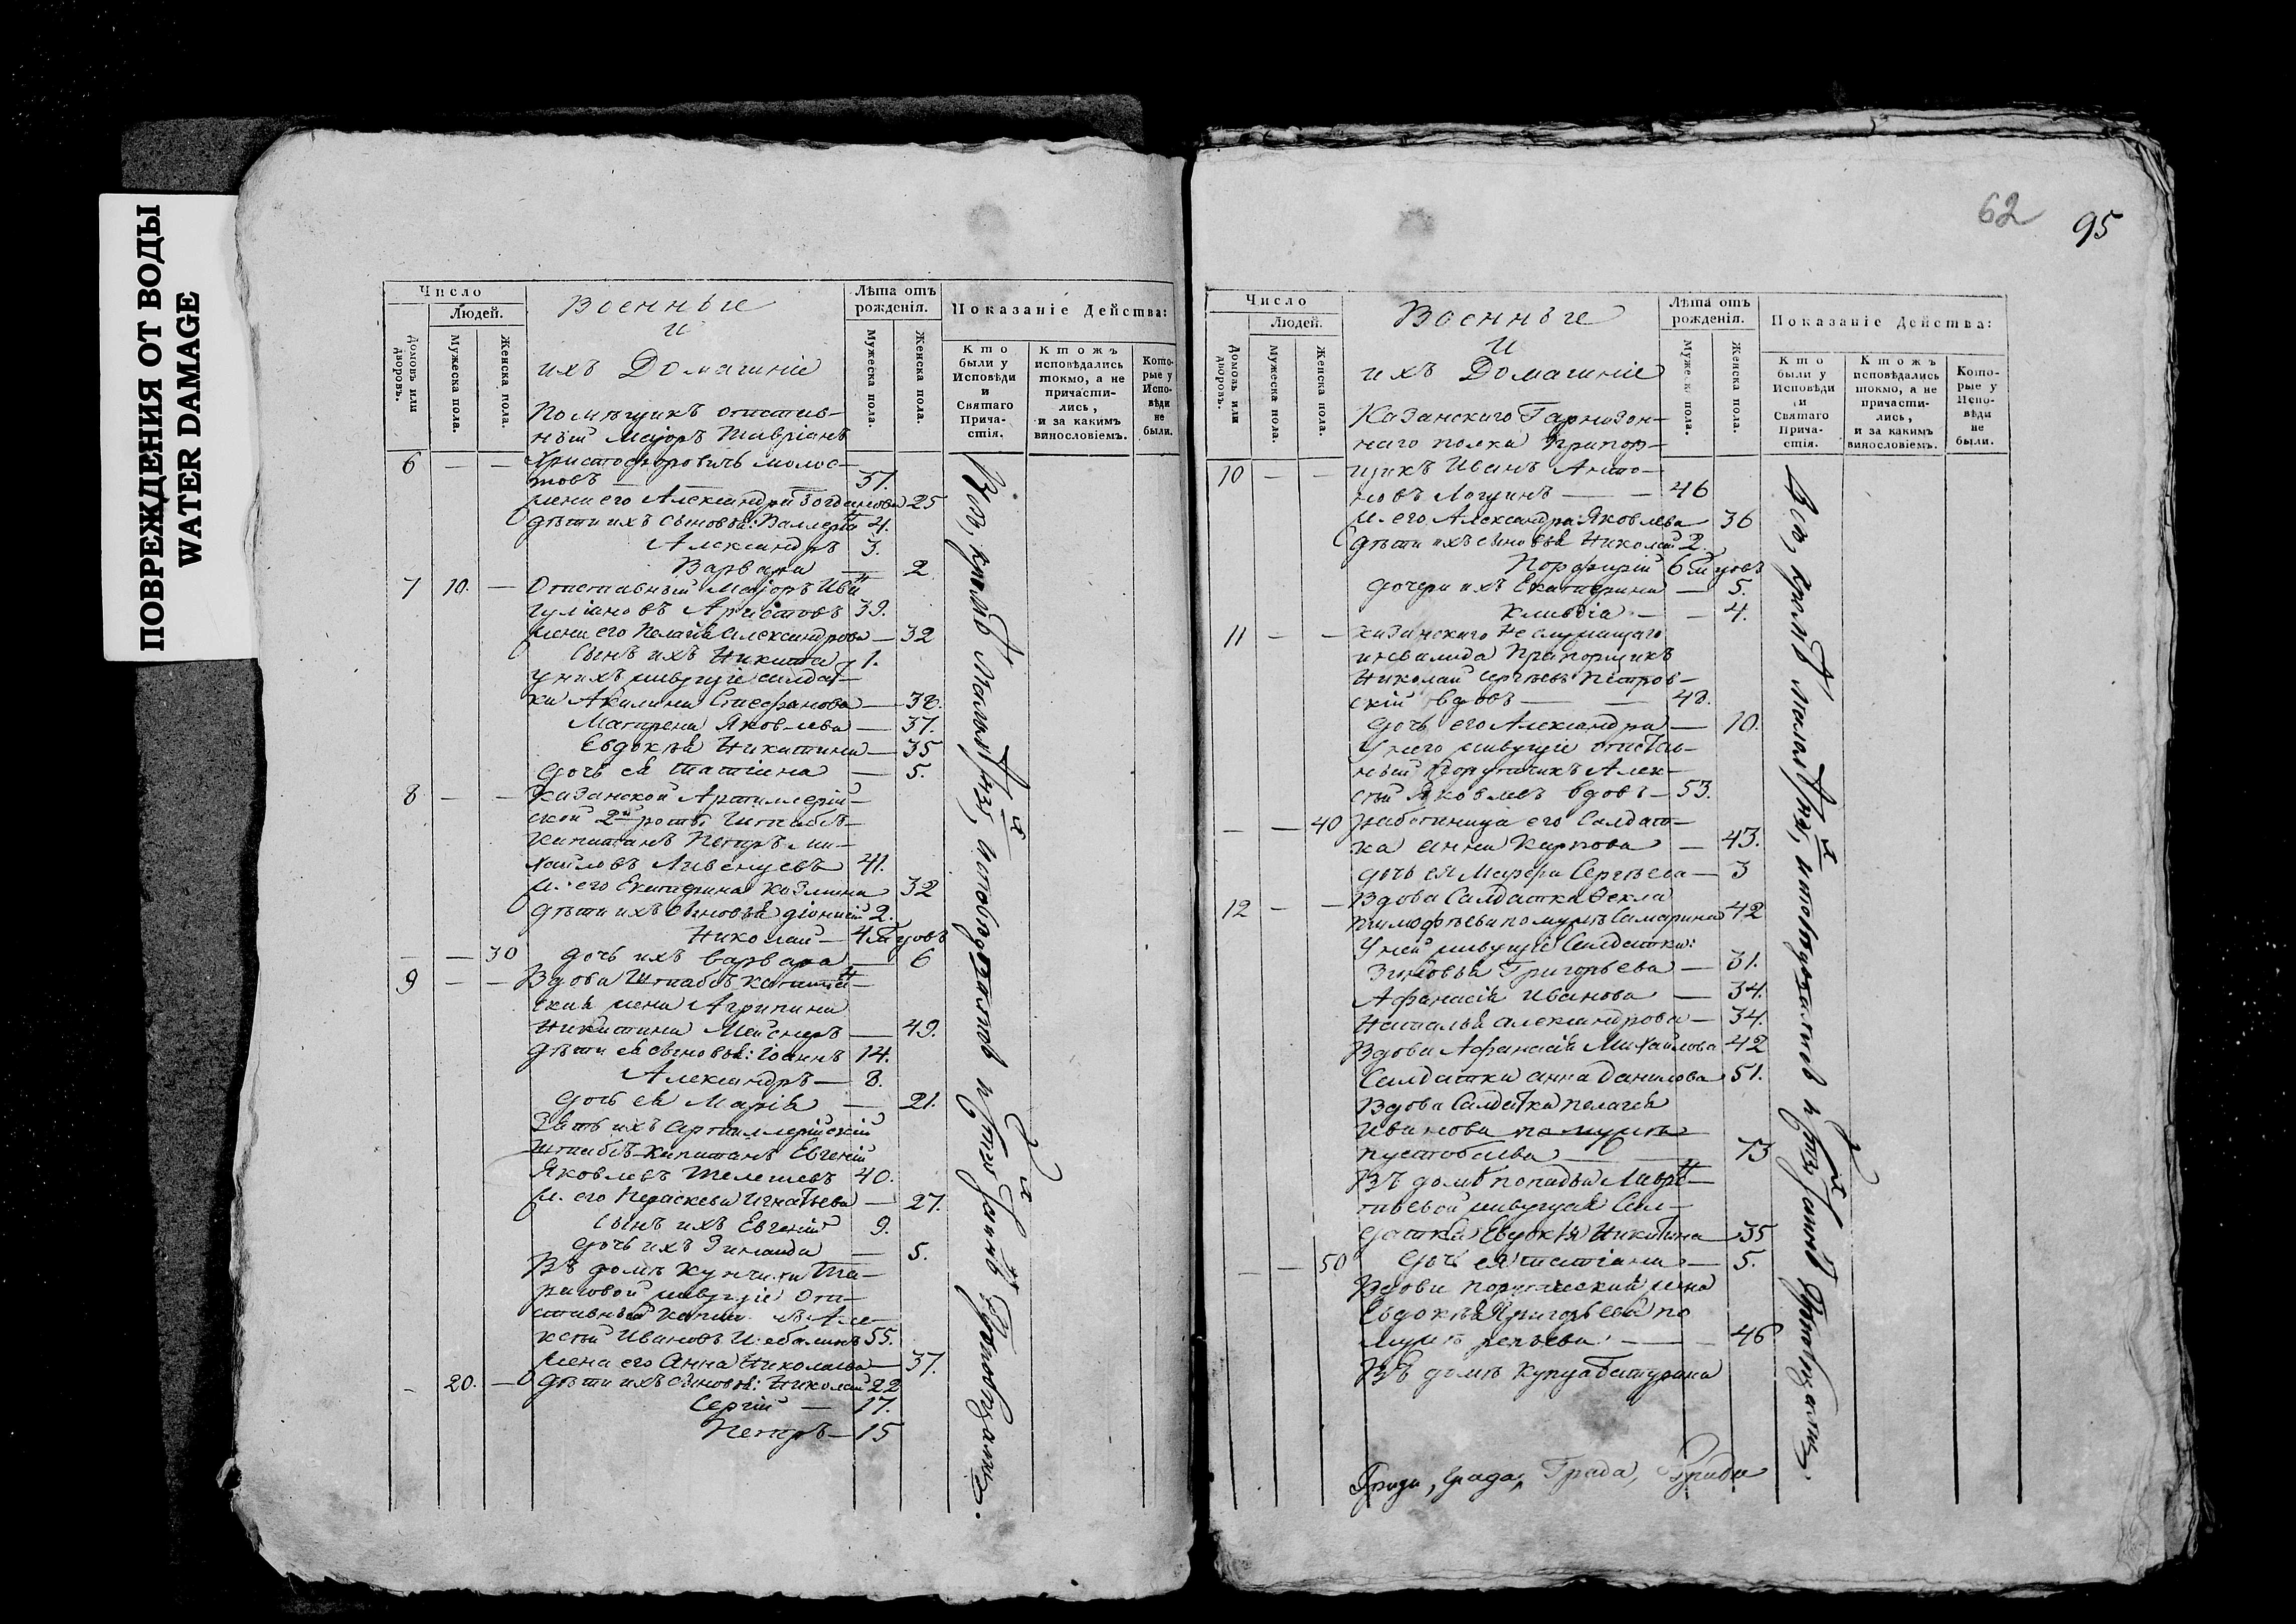 ПОВРЕЖДЕНИЯ ОТ ВОДЫ
WATER DAMAGE
Число
Людей.
Домовъ или дворовъ.
Мужеска пола.
Женска пола.
Военные
и
ихъ Домашніе
Лѣта отъ рожденія.
Мужеска пола.
Женска пола.
Показаніе Действа:
Кто были у Исповѣди и Святаго Причастія.
Ктожъ исповѣдались токмо, а не причастились, и за какимъ винословіемъ.
Которые у Исповѣди не были.
Помѣщикъ отстав-
ный Маіоръ
6 — — Христофоровичь Молос-
товъ — 37.
жена его Александра Богданова 25
дѣти ихъ сыновья: Валеріанъ 4.
Александръ 3.
Варвара — 2
7 10. — Отставный Маіоръ Иванъ
Аристовъ 39.
жена его Пелагія Александрова — 32
сынъ ихъ Никита 1.
у нихъ живущіе солдат-
ки Акилина Стефанова — 38.
Матрена Яковлева — 37.
Евдокія Никитина — 35
дочь ея Татіана — 5.
8 — — Казанской Артиллерій-
ской 2й роты Штабсъ-
капитанъ Петръ Ми-
хайловъ 41.
ж. его Екатерина Козмина 32
дѣти ихъ сыновья Діонисій 2.
Николай — 4 мцовъ
— — 30 дочь ихъ Варвара — 6
9 — — Вдова Штабсъ Капитан-
ская жена Агрипина
Никитина Мейснеръ — 49.
дѣти ея сыновья: Іоаннъ 14.
Александръ — 8.
дочь ея Марія — 21.
Зять ихъ Артиллерійскій
штабсъ-капитанъ Евгеній
Яковлевъ Телешевъ 40.
ж. его Параскева Игнатьева — 27.
сынъ ихъ Евгеній 9.
дочь ихъ Зинаида — 5.
Въ домѣ купчихи
живущіе Отс-
тавный Але-
ксѣй Ивановъ 55.
жена его Анна Николаева — 37.
— 20. — дѣти ихъ сыновья: Николай 22
Сергій — 17.
Петръ — 15
Всѣ, кромѣ малолѣтныхъ, исповѣдались и Святыхъ Таинъ Пріобщались.
62 95
Число
Людей.
Домовъ или дворовъ.
Мужеска пола.
Женска пола.
Военные
и
ихъ Домашніе
Лѣта отъ рожденія.
Мужеска пола.
Женска пола.
Показаніе Действа:
Кто были у Исповѣди и Святаго Причастія.
Ктожъ исповѣдались токмо, а не причастились, и за какимъ винословіемъ.
Которые у Исповѣди не были.
Казанскаго Гарнизон-
наго полка Прапор-
10 — — щикъ Иванъ Анто-
новъ Логинъ — — 46
ж. его Александра Яковлева 36
дѣти ихъ сыновья Николай 2.
Порфирій 6 мцовъ
дочери ихъ Екатерина — 5.
Клавдіа — — 4.
11 — — Казанскаго Неслужащаго
инвалида Прапорщикъ
Николай Сергѣевъ Петров-
скій вдовъ — — 48.
дочь его Александра — 10.
У него живущіе отстав-
ный Порутчикъ Алек-
сѣй Яковлевъ вдовъ — 53.
— — 40 работница его Солдат-
ка Анна Карпова — 43.
дочь ея Марфа Сергѣева — 3
12 — — Вдова Салдатка Ѳекла
Тимофѣева по мужѣ Самарина 42
У ней живущіе Салдатки:
Зиновья Григорьева — 31.
Афанасія Иванова — 34.
Наталья Александрова — 34.
Вдова Афанасія Михайлова 42
Салдатка Анна Данилова 51.
Вдова Салдатка Пелагея
Иванова по мужѣ
Пустобаева — — 73
Въ домѣ попадьи Лаврен-
тьевой живущая Сал-
датка Евдокія Никитина 35
— — 50 дочь ея Татіана — 5.
Вдова Порутческая жена
Евдокія Григорьева по
мужѣ Репьева — — 46
Въ домѣ купца Батурина
Всѣ, кромѣ малолѣтныхъ, исповѣдались и Святыхъ Таинъ Пріобщались.
Града, Града, Града, Града